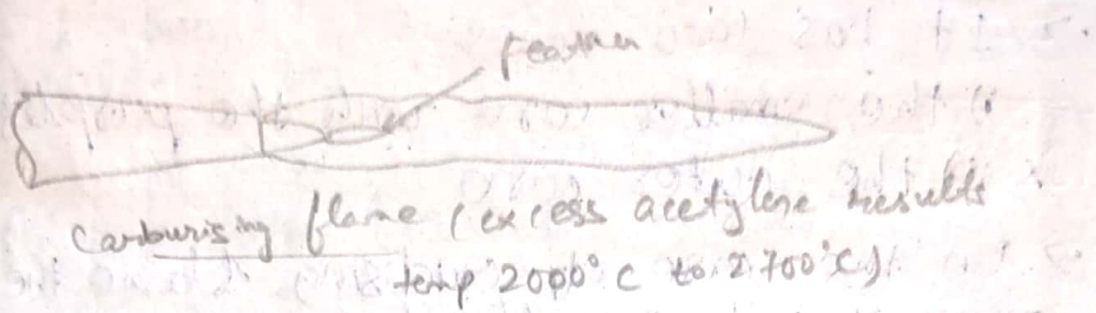 feather
Carburising flame (excess acetylene results
temp 2000°C to 2700°C)